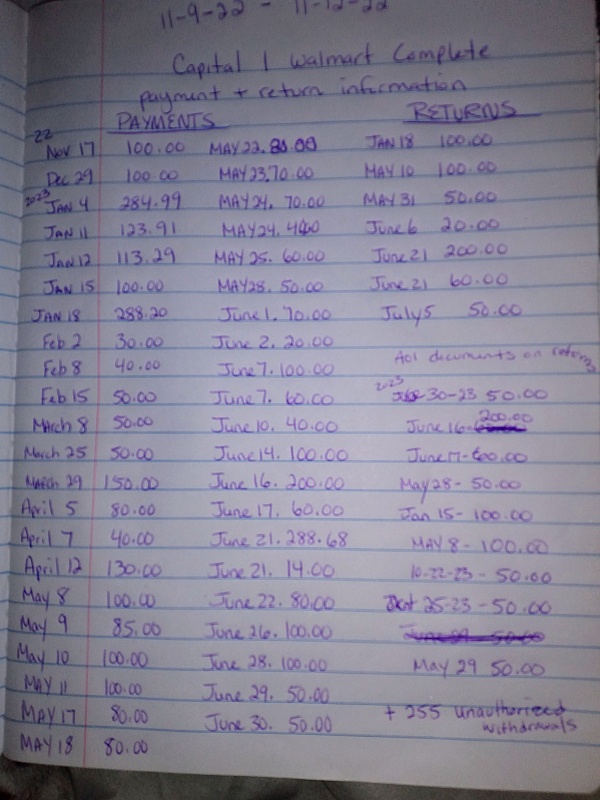 11-9-22 - 11-12-22
Capital 1 Walmart Complete
payment + return information
PAYMENTS RETURNS
22
Nov 17 100.00 MAY 22. 80.00 JAN 18 100.00
Dec 29 100.00 MAY 23. 70.00 MAY 10 100.00
2023 JAN 4 284.99 MAY 24. 70.00 MAY 31 50.00
JAN 11 123.91 MAY 24. 40.00 June 6 20.00
JAN 12 113.29 MAY 25. 60.00 June 21 200.00
JAN 15 100.00 MAY 28. 50.00 June 21 60.00
JAN 18 288.20 June 1. 70.00 July 5 50.00
Feb 2 30.00 June 2. 20.00
Feb 8 40.00 June 7. 100.00 documents on returns
Feb 15 50.00 June 7. 60.00 2023 30-23 50.00
March 8 50.00 June 10. 40.00 June 16- 200.00
March 25 50.00 June 14. 100.00 June 17- 60.00
March 29 150.00 June 16. 200.00 May 28- 50.00
April 5 80.00 June 17. 60.00 Jan 15- 100.00
April 7 40.00 June 21. 288.68 MAY 8- 100.00
April 12 130.00 June 21. 14.00 10-22-23 - 50.00
May 8 100.00 June 22. 80.00 Oct 25-23 - 50.00
May 9 85.00 June 26. 100.00
May 10 100.00 June 28. 100.00 May 29 50.00
MAY 11 100.00 June 29. 50.00
MAY 17 80.00 June 30. 50.00 + 255 unauthorized
withdrawals
MAY 18 80.00